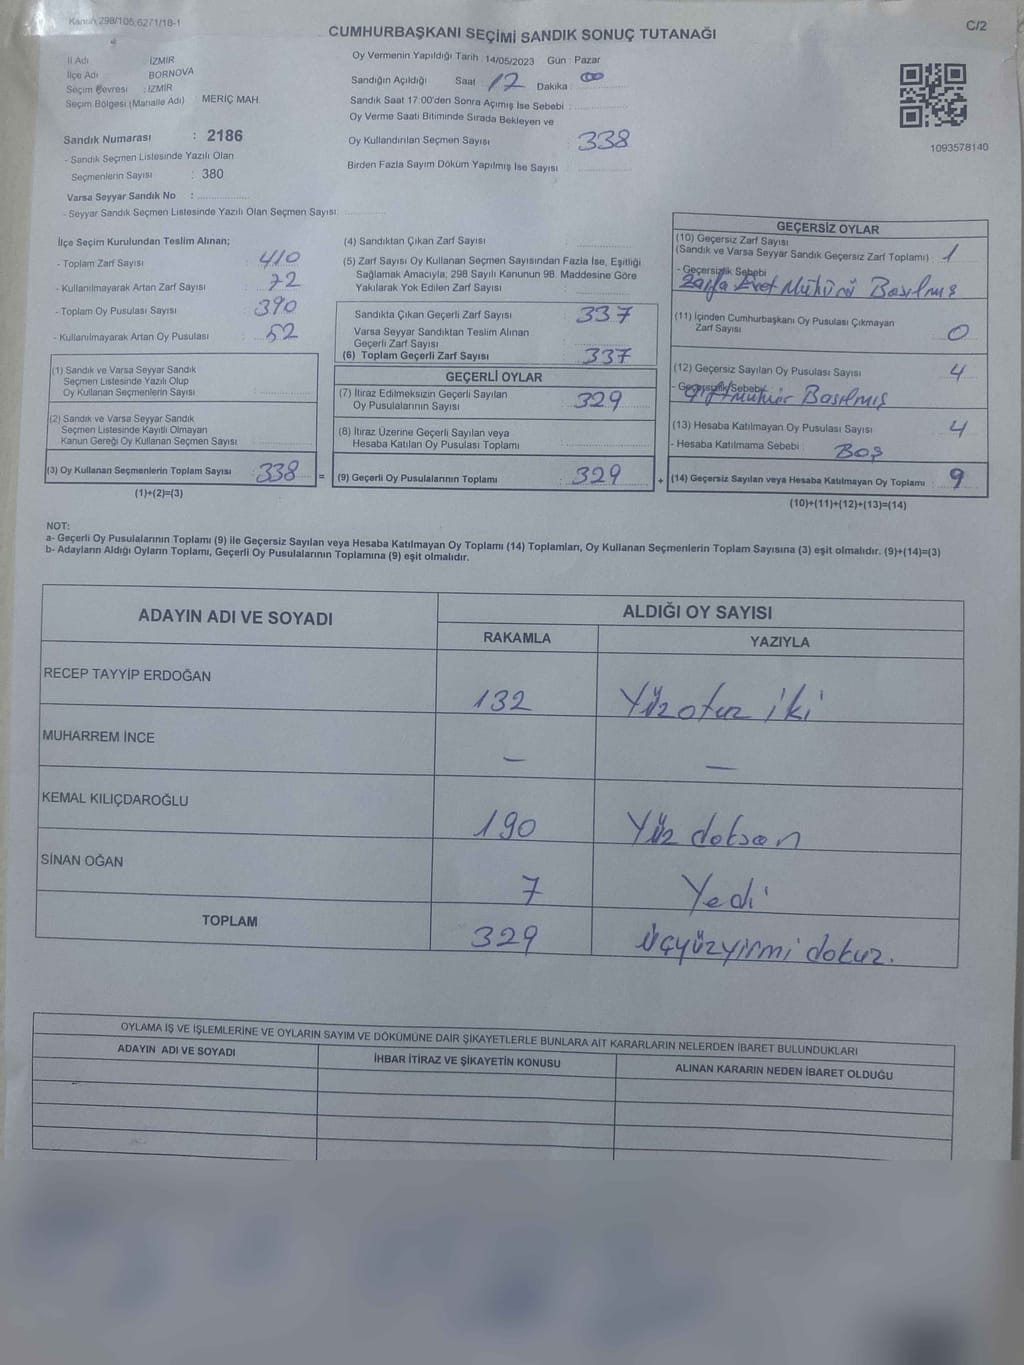 Kanun 298/105,6271/18-1
C/2
CUMHURBAŞKANI SEÇİMİ SANDIK SONUÇ TUTANAĞI
İl Adı : İZMİR
İlçe Adı : BORNOVA
Seçim Çevresi : İZMİR
Seçim Bölgesi (Mahalle Adı) : MERİÇ MAH.
Sandık Numarası : 2186
- Sandık Seçmen Listesinde Yazılı Olan
Seçmenlerin Sayısı : 380
Varsa Seyyar Sandık No :
- Seyyar Sandık Seçmen Listesinde Yazılı Olan Seçmen Sayısı:
Oy Vermenin Yapıldığı Tarih : 14/05/2023 Gün : Pazar
Sandığın Açıldığı Saat : 17 Dakika : 00
Sandık Saat 17:00'den Sonra Açımış İse Sebebi :
Oy Verme Saati Bitiminde Sırada Bekleyen ve
Oy Kullandırılan Seçmen Sayısı : 338
Birden Fazla Sayım Döküm Yapılmış İse Sayısı :
1093578140
İlçe Seçim Kurulundan Teslim Alınan;
- Toplam Zarf Sayısı : 410
- Kullanılmayarak Artan Zarf Sayısı : 72
- Toplam Oy Pusulası Sayısı : 390
- Kullanılmayarak Artan Oy Pusulası : 52
(1) Sandık ve Varsa Seyyar Sandık
Seçmen Listesinde Yazılı Olup
Oy Kullanan Seçmenlerin Sayısı :
(2) Sandık ve Varsa Seyyar Sandık
Seçmen Listesinde Kayıtlı Olmayan
Kanun Gereği Oy Kullanan Seçmen Sayısı :
(3) Oy Kullanan Seçmenlerin Toplam Sayısı : 338
(1)+(2)=(3)
(4) Sandıktan Çıkan Zarf Sayısı :
(5) Zarf Sayısı Oy Kullanan Seçmen Sayısından Fazla İse, Eşitliği
Sağlamak Amacıyla; 298 Sayılı Kanunun 98. Maddesine Göre
Yakılarak Yok Edilen Zarf Sayısı :
Sandıkta Çıkan Geçerli Zarf Sayısı : 337
Varsa Seyyar Sandıktan Teslim Alınan
Geçerli Zarf Sayısı :
(6) Toplam Geçerli Zarf Sayısı : 337
GEÇERLİ OYLAR
(7) İtiraz Edilmeksizin Geçerli Sayılan
Oy Pusulalarının Sayısı : 329
(8) İtiraz Üzerine Geçerli Sayılan veya
Hesaba Katılan Oy Pusulası Toplamı :
= (9) Geçerli Oy Pusulalarının Toplamı : 329 +
GEÇERSİZ OYLAR
(10) Geçersiz Zarf Sayısı
(Sandık ve Varsa Seyyar Sandık Geçersiz Zarf Toplamı) : 1
- Geçersizlik Sebebi
Zarfa Evet Mühürü Basılmış
(11) İçinden Cumhurbaşkanı Oy Pusulası Çıkmayan
Zarf Sayısı : 0
(12) Geçersiz Sayılan Oy Pusulası Sayısı : 4
- Geçersizlik Sebebi
Çift Mühür Basılmış
(13) Hesaba Katılmayan Oy Pusulası Sayısı : 4
- Hesaba Katılmama Sebebi : Boş
(14) Geçersiz Sayılan veya Hesaba Katılmayan Oy Toplamı : 9
(10)+(11)+(12)+(13)=(14)
NOT:
a- Geçerli Oy Pusulalarının Toplamı (9) ile Geçersiz Sayılan veya Hesaba Katılmayan Oy Toplamı (14) Toplamları, Oy Kullanan Seçmenlerin Toplam Sayısına (3) eşit olmalıdır. (9)+(14)=(3)
b- Adayların Aldığı Oyların Toplamı, Geçerli Oy Pusulalarının Toplamına (9) eşit olmalıdır.
ADAYIN ADI VE SOYADI
ALDIĞI OY SAYISI
RAKAMLA YAZIYLA
RECEP TAYYİP ERDOĞAN 132 Yüz otuz iki
MUHARREM İNCE — —
KEMAL KILIÇDAROĞLU 190 Yüz doksan
SİNAN OĞAN 7 Yedi
TOPLAM 329 Üçyüzyirmi dokuz.
OYLAMA İŞ VE İŞLEMLERİNE VE OYLARIN SAYIM VE DÖKÜMÜNE DAİR ŞİKAYETLERLE BUNLARA AİT KARARLARIN NELERDEN İBARET BULUNDUKLARI
ADAYIN ADI VE SOYADI İHBAR İTİRAZ VE ŞİKAYETİN KONUSU ALINAN KARARIN NEDEN İBARET OLDUĞU